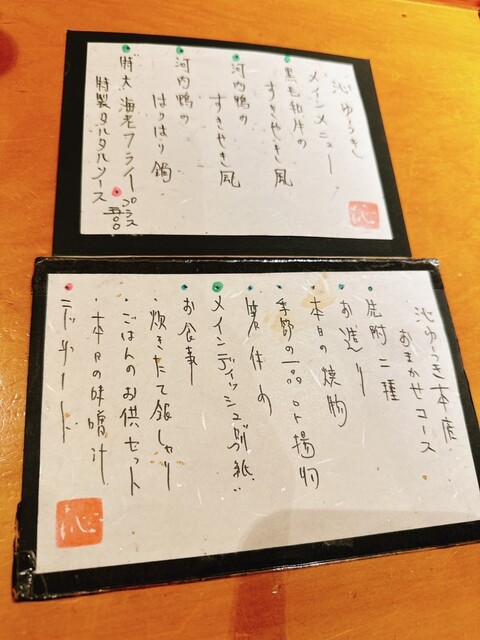 沁ゆうき
メインメニュー
黒毛和牛の
すきやき風
河内鴨の
すきやき風
河内鴨の
はりはり鍋
特大海老フライ プラス 五〇〇
特製タルタルソース
沁
沁ゆうき本店
おまかせコース
先附二種
お造り
・本日の焼物
季節の一品 or 揚物
メインディッシュ別紙
お食事
・炊きたて銀しゃり
・ごはんのお供セット
・本日の味噌汁
デザート
沁